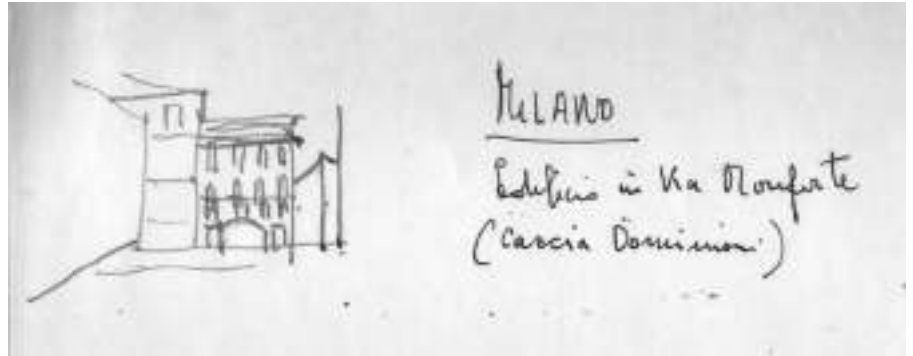 MILANO
Edificio in Via Monforte
(Caccia Dominioni)